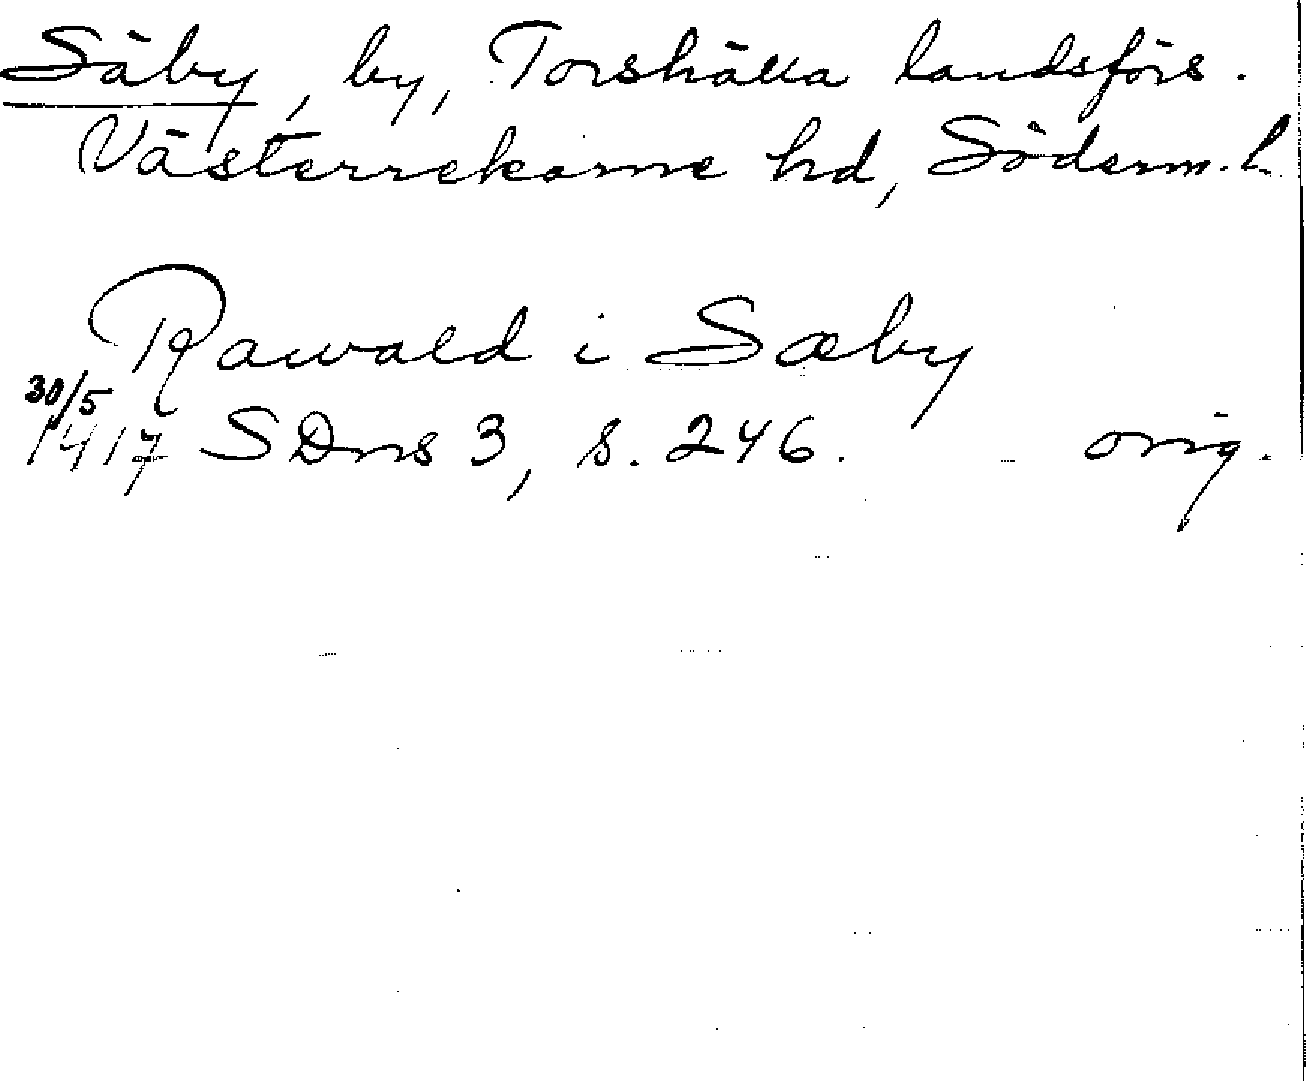 Säby, by, Torshälla landsförs.
Västerrekarne hd, Söderm. l.
Rawald i Sæby
30/5
1417 SDns 3, s. 246. orig.